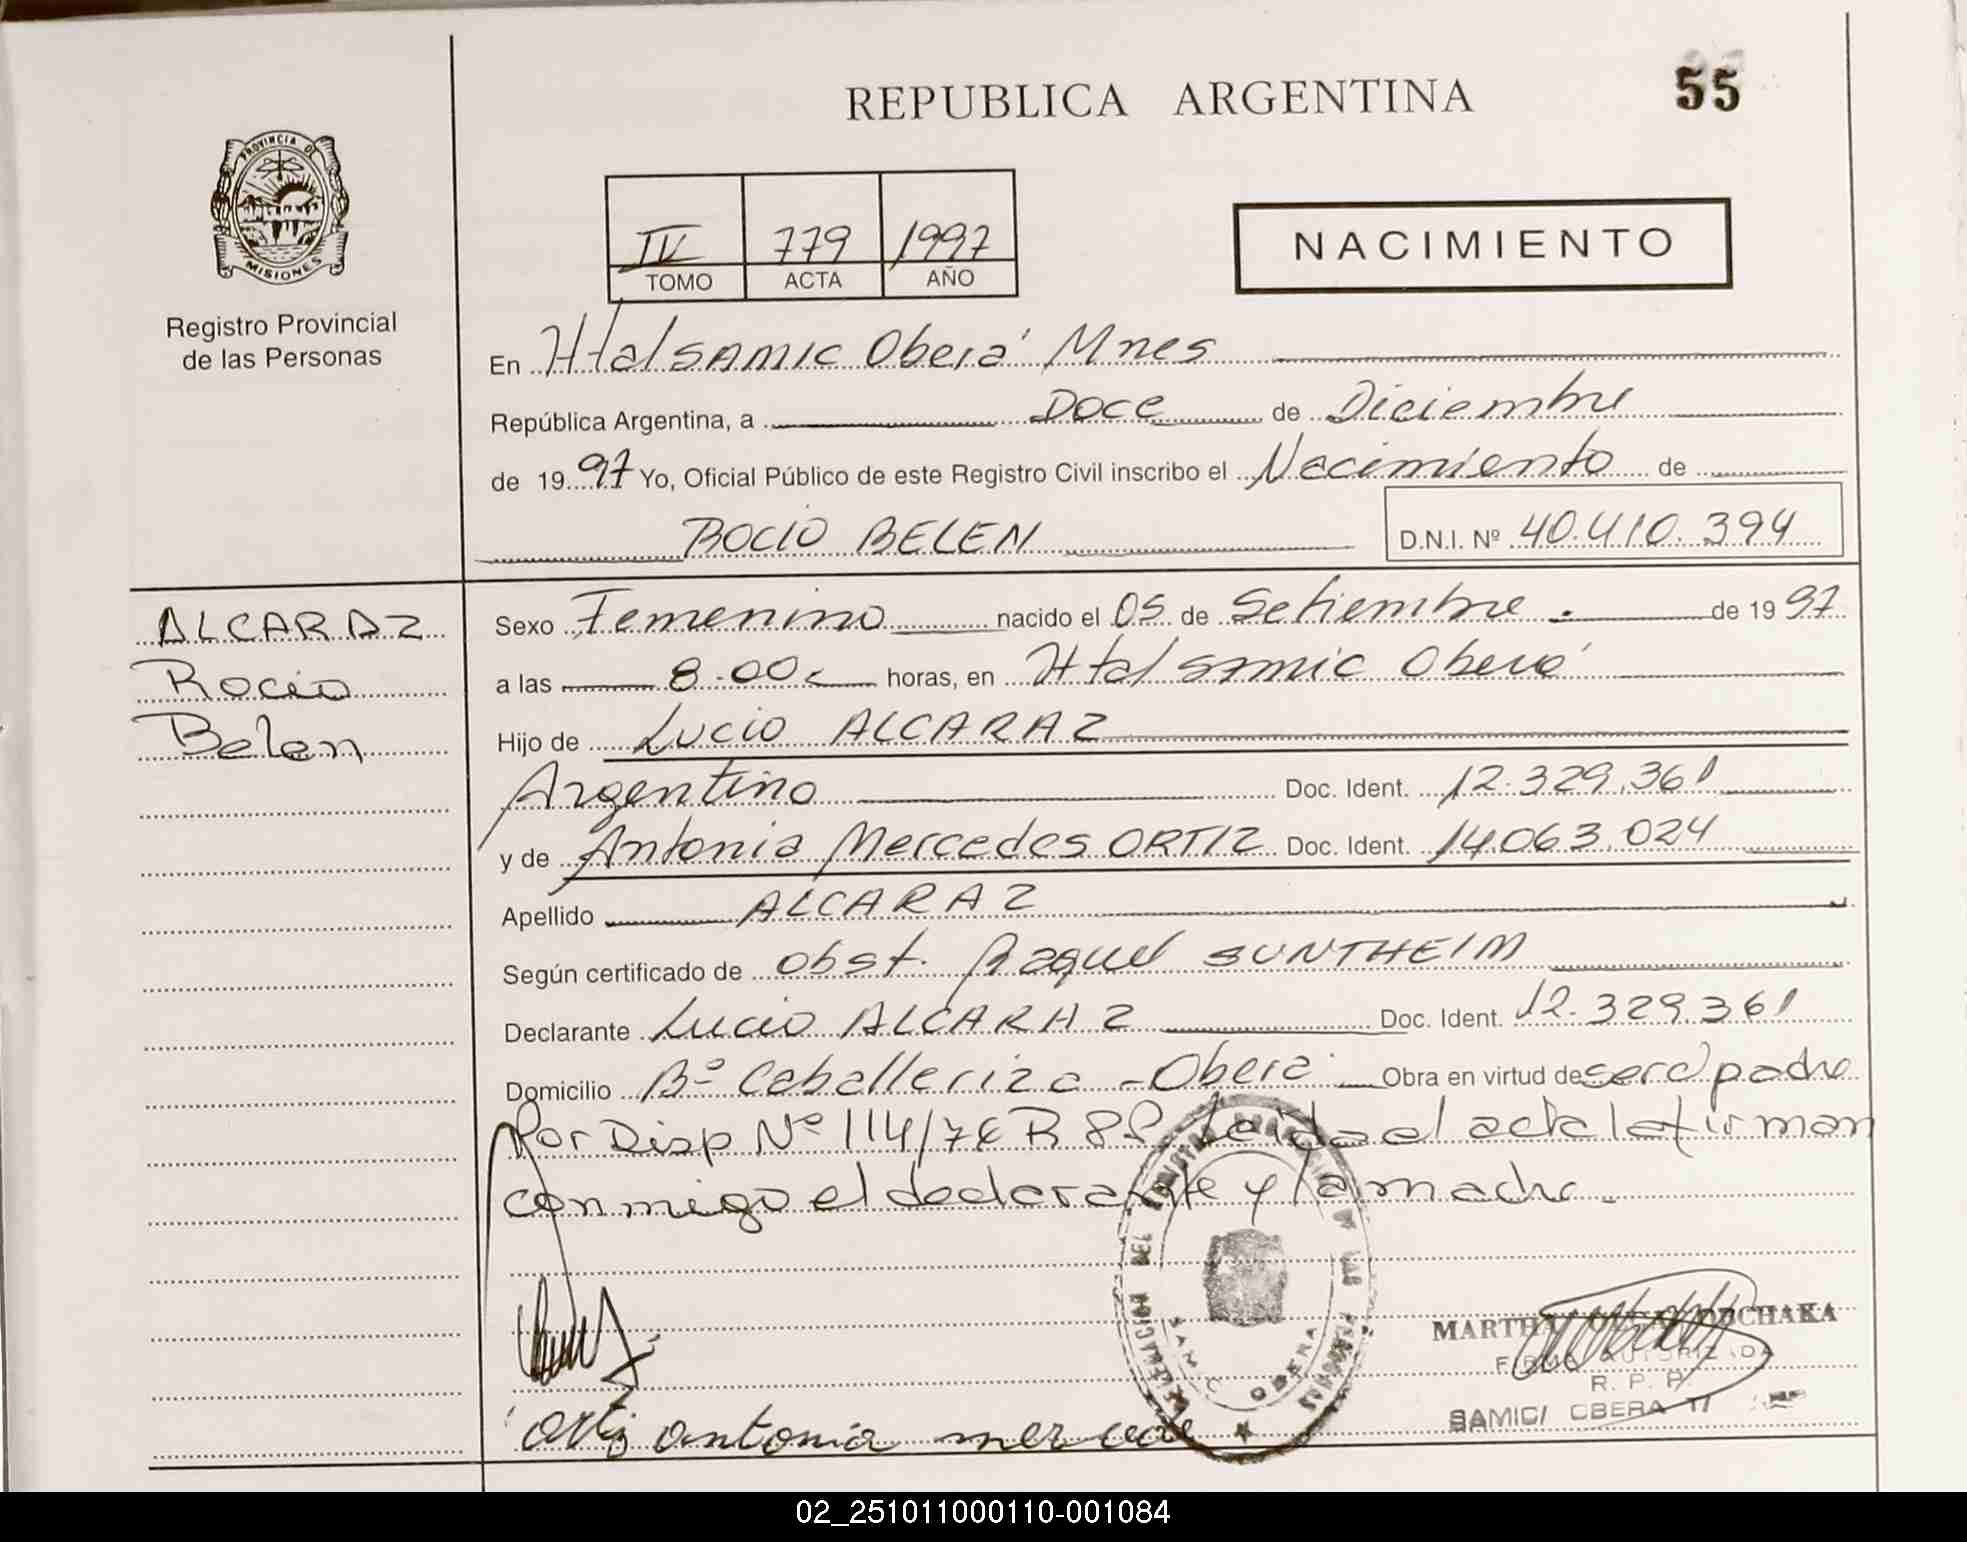 REPUBLICA ARGENTINA
55
PROVINCIA DE
MISIONES
Registro Provincial
de las Personas
IV 779 1997
TOMO ACTA AÑO
NACIMIENTO
En Htal SAMIC Oberá Mnes
República Argentina, a Doce de Diciembre
de 1997 Yo, Oficial Público de este Registro Civil inscribo el Nacimiento de
ROCIO BELEN
D.N.I. Nº 40.410.394
ALCARAZ
Rocio
Belen
Sexo Femenino nacido el 05 de Setiembre de 1997
a las 8.00 horas, en Htal SAMIC Oberá
Hijo de Lucio ALCARAZ
Argentino Doc. Ident. 12.329.361
y de Antonia Mercedes ORTIZ Doc. Ident. 14.063.024
Apellido ALCARAZ
Según certificado de obst. Raquel SUNTHEIM
Declarante Lucio ALCARAZ Doc. Ident. 12.329.361
Domicilio Bº Caballeriza - Oberá Obra en virtud de ser el padre
Por Disp Nº 114/76 Leida el acta la firman
conmigo el declarante y la madre.
DELEGACION DEL REGISTRO PROVINCIAL DE LAS PERSONAS
SAMIC OBERA
MARTHA
FIRMA AUTORIZADA
R. P. P.
SAMIC/ OBERA
Ortiz antonia mercede
02_251011000110-001084